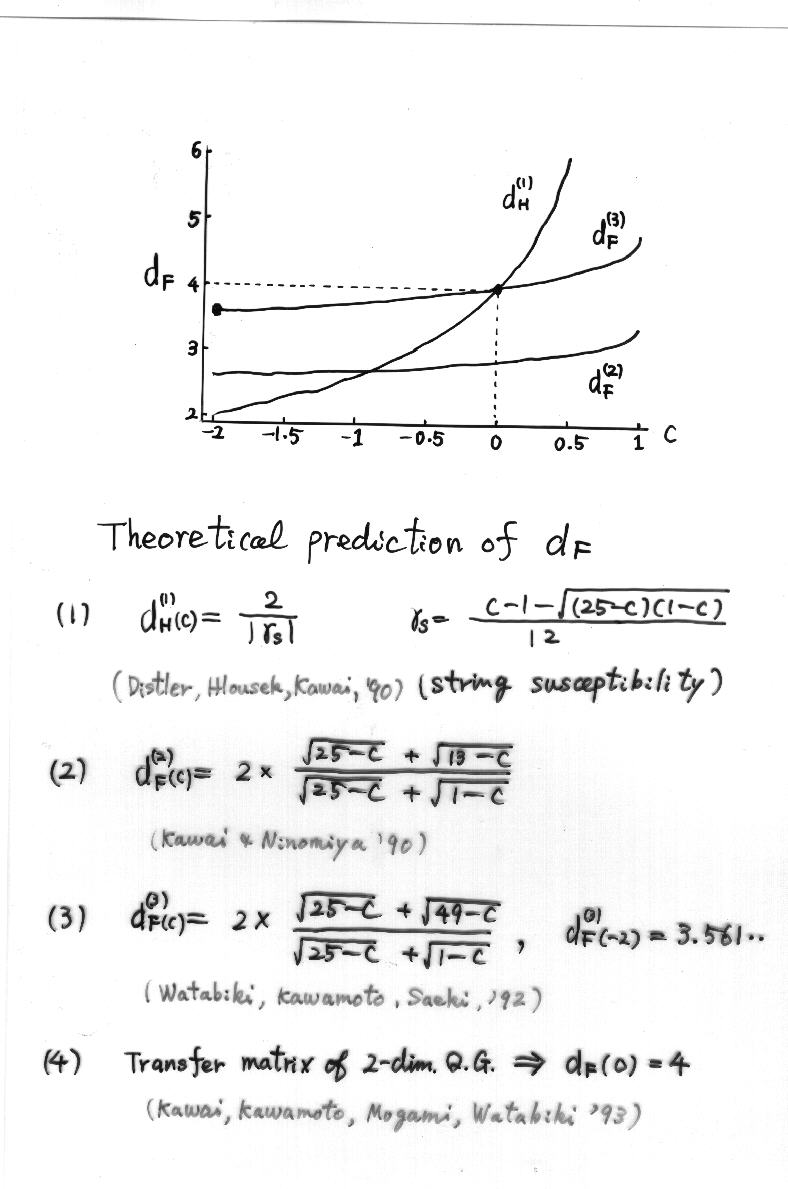 6
d_H^(1)
5
d_F^(3)
d_F 4
3
d_F^(2)
2
-2 -1.5 -1 -0.5 0 0.5 1 C
Theoretical prediction of d_F
(1) d_H^(1)(c) = 2/|γs| γs = (C-1-√((25-C)(1-C)))/12
(Distler, Hlousek, Kawai, '90) (string susceptibility)
(2) d_F^(2)(c) = 2 × (√(25-C) + √(13-C))/(√(25-C) + √(1-C))
(Kawai & Ninomiya '90)
(3) d_F^(3)(c) = 2 × (√(25-C) + √(49-C))/(√(25-C) + √(1-C)), d_F^(3)(-2) = 3.561..
(Watabiki, Kawamoto, Saeki, '92)
(4) Transfer matrix of 2-dim. Q.G. ⇒ d_F(0) = 4
(Kawai, Kawamoto, Mogami, Watabiki '93)